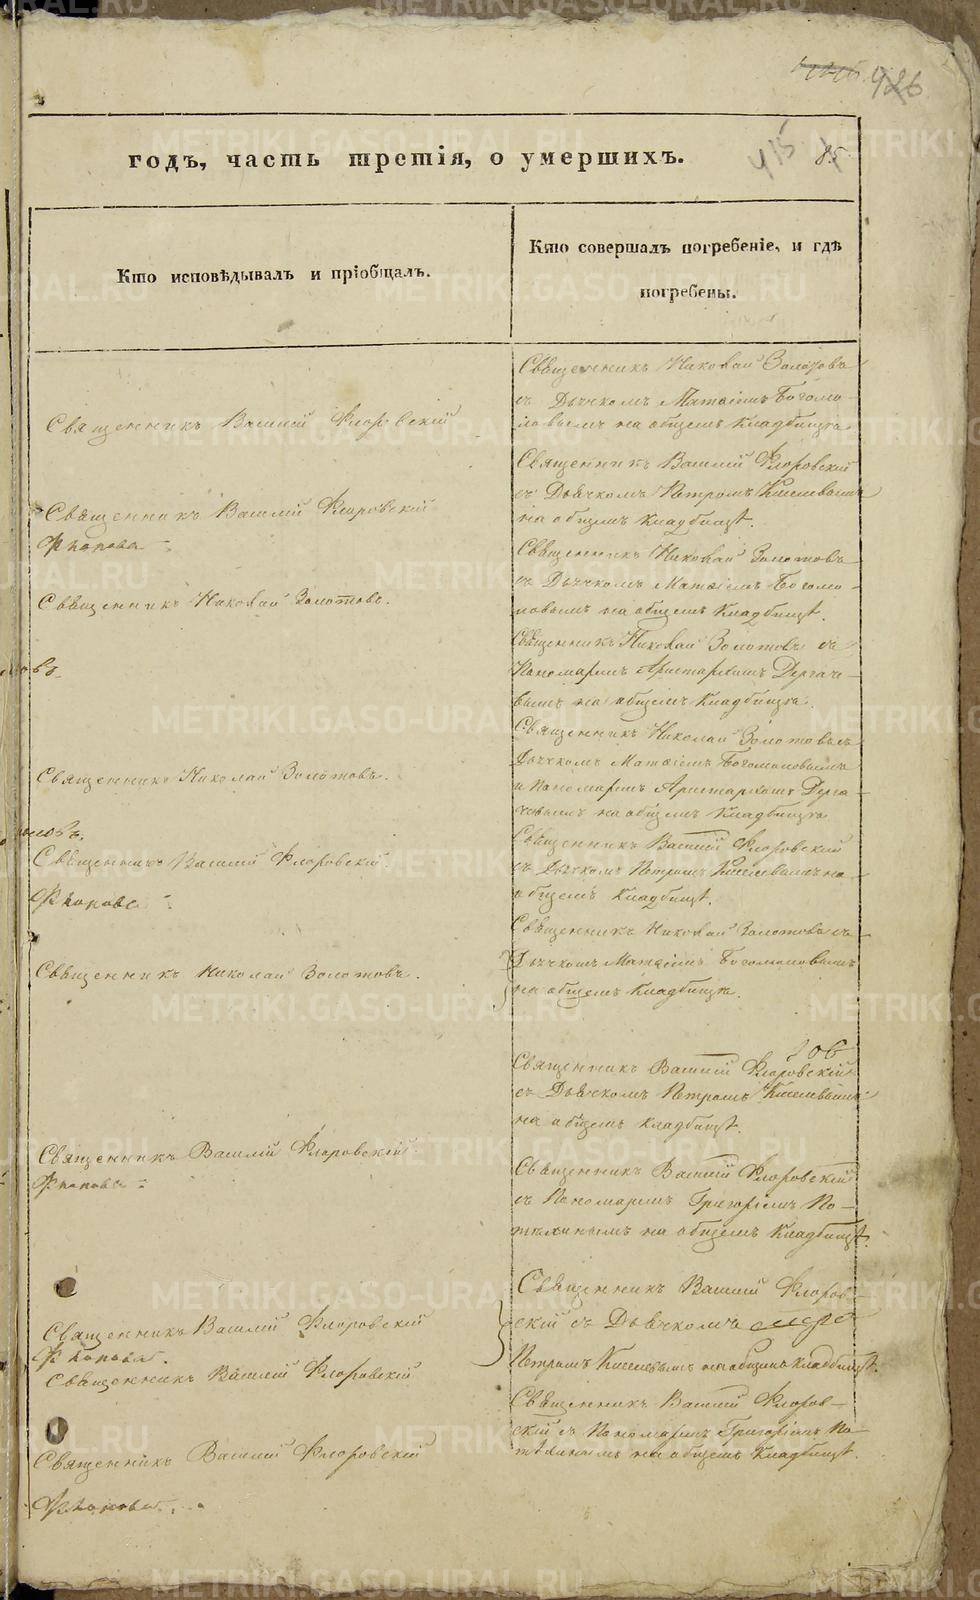 426
годъ, часть третія, о умершихъ.
415
85.
Кто исповѣдывалъ и пріобщалъ.
Кто совершалъ погребеніе, и гдѣ
погребены.
Священникъ Василій Флоровскій
Священникъ Василій Флоровскій
Священникъ Николай Золотовъ.
Священникъ Николай Золотовъ.
Священникъ Василій Флоровскій
Священникъ Николай Золотовъ.
Священникъ Василій Флоровскій
Священникъ Василій Флоровскій
Священникъ Василій Флоровскій
Священникъ Василій Флоровскій
Священникъ Николай Золотовъ
съ Дьячкомъ Матѳіемъ Богомо-
ловымъ на общемъ кладбищѣ
Священникъ Василій Флоровскій
съ Дьячкомъ Петромъ Киселевымъ
на общемъ кладбищѣ.
Священникъ Николай Золотовъ
съ Дьячкомъ Матѳіемъ Богомо-
ловымъ на общемъ кладбищѣ.
Священникъ Николай Золотовъ съ
Пономаремъ Аристархомъ Дергаче-
вымъ на общемъ кладбищѣ.
Священникъ Николай Золотовъ съ
Дьячкомъ Матѳіемъ Богомоловымъ
и Пономаремъ Аристархомъ Дерга-
чевымъ на общемъ кладбищѣ
Священникъ Василій Флоровскій
съ Дьячкомъ Петромъ Киселевымъ на
общемъ кладбищѣ.
Священникъ Николай Золотовъ съ
Дьячкомъ Матѳіемъ Богомоловымъ
на общемъ кладбищѣ.
Священникъ Василій Флоровскій
съ Дьячкомъ Петромъ Киселевымъ
на общемъ кладбищѣ.
Священникъ Василій Флоровскій
съ Пономаремъ Григоріемъ По-
на общемъ кладбищѣ.
Священникъ Василій Флоров-
скій съ Дьячкомъ
Петромъ Киселевымъ на общемъ кладбищѣ.
Священникъ Василій Флоров-
скій съ Пономаремъ Григоріемъ По-
на общемъ кладбищѣ.
METRIKI.GASO-URAL.RU